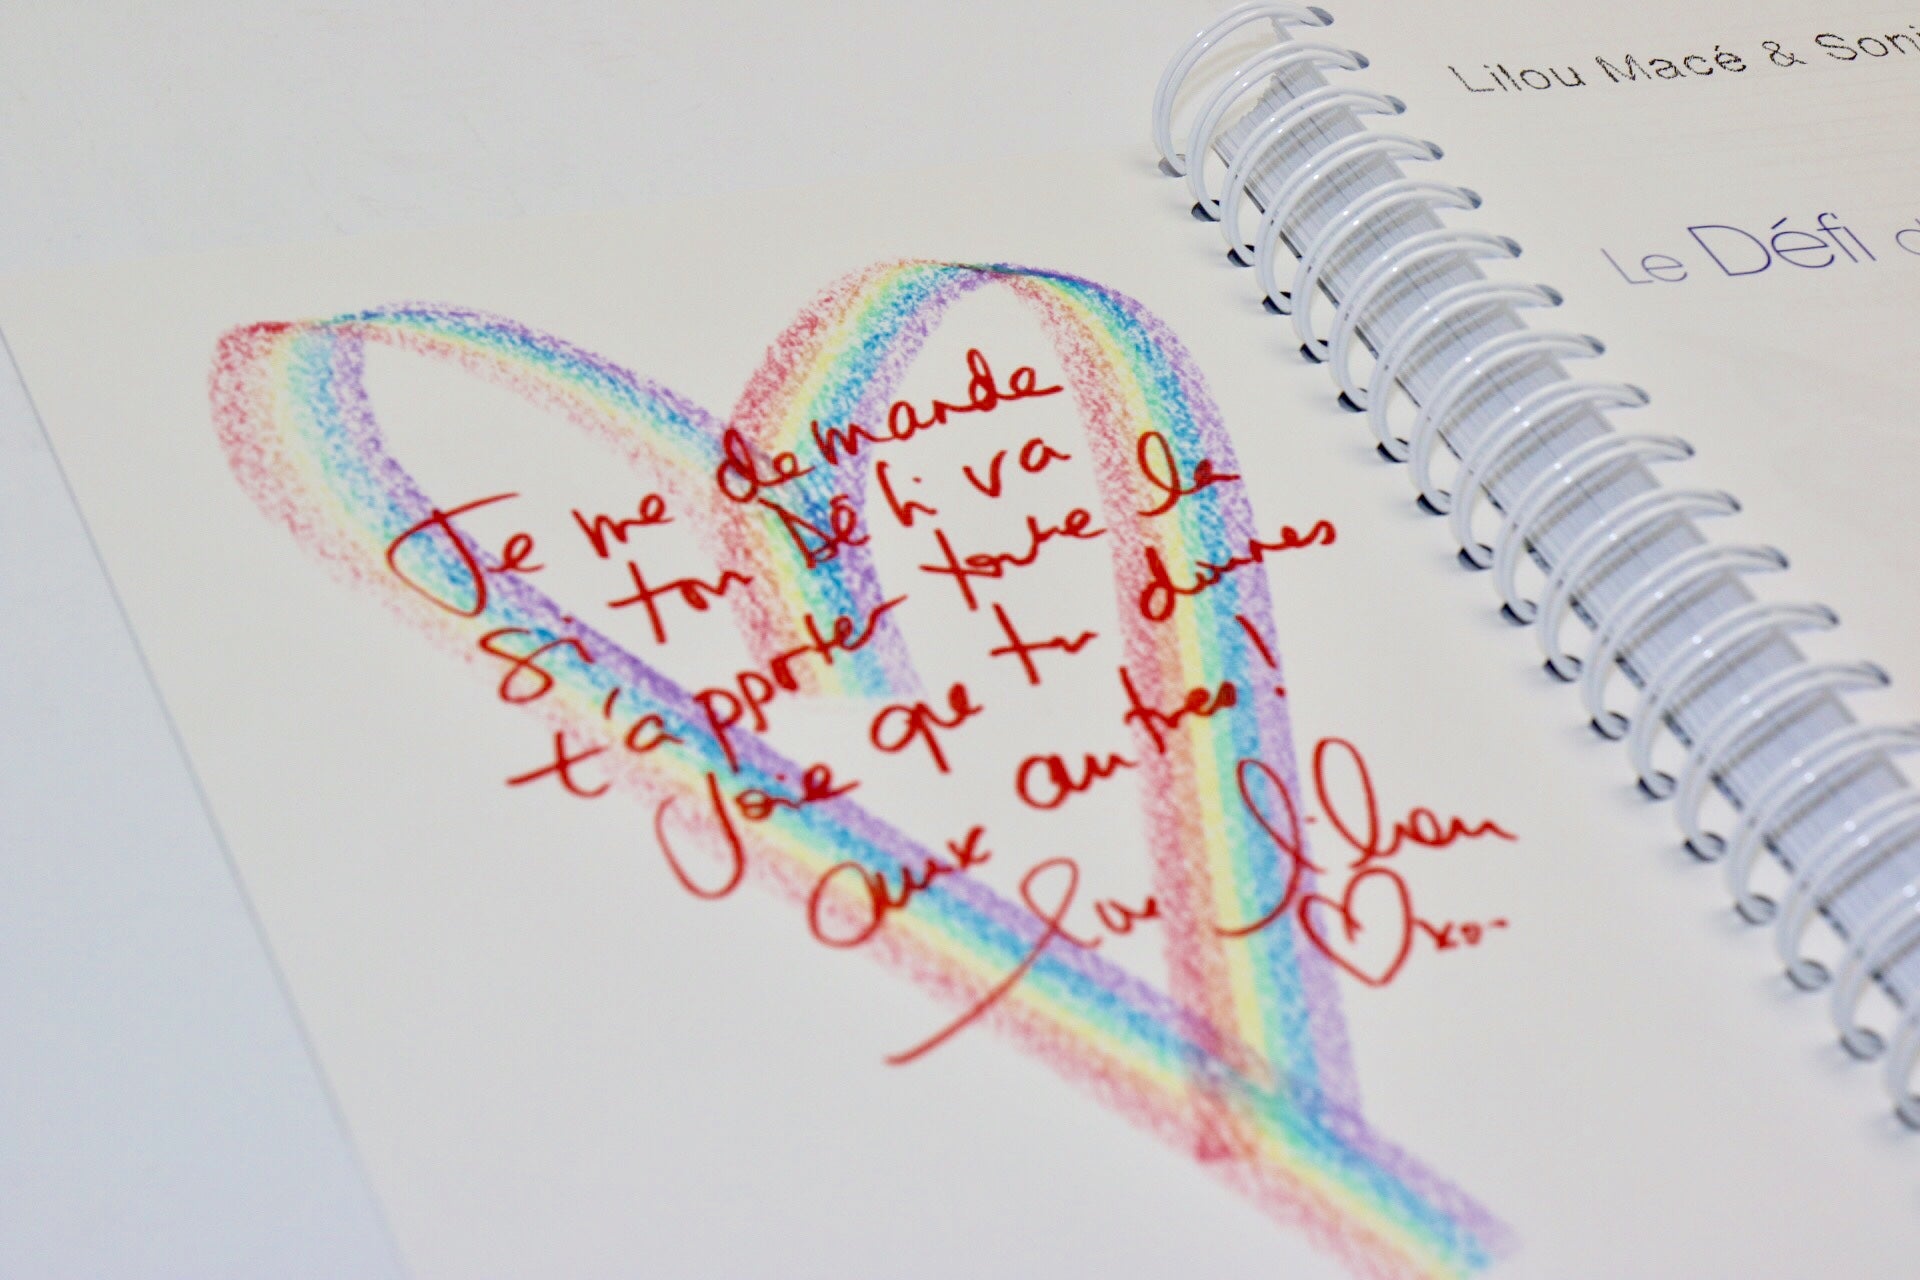 Je me demande
si ton Défi va
t'apporter toute la
Joie que tu donnes
aux autres!
Love Lilou
xo-
Lilou Macé & Soni
Le Défi d